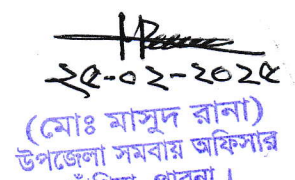 ২৫-০২-২০২৫
(মোঃ মাসুদ রানা)
উপজেলা সমবায় অফিসার
পাবনা।